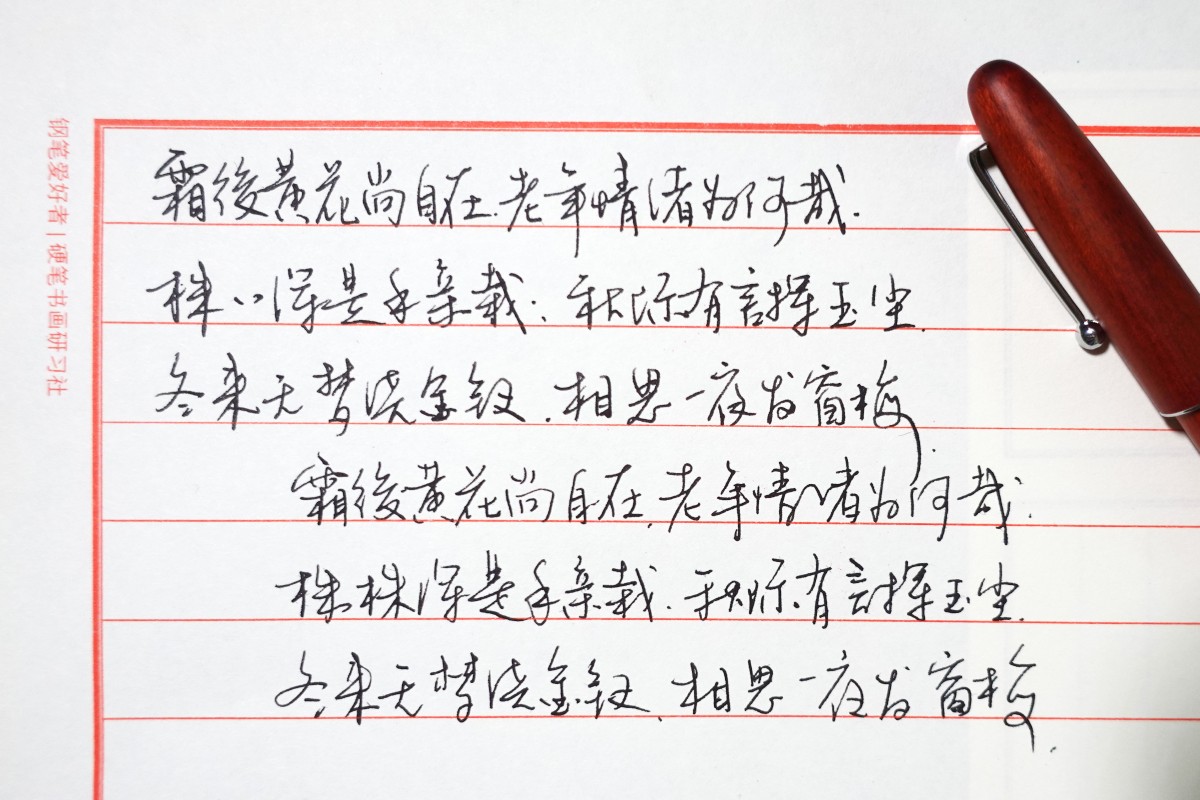 钢笔爱好者 | 硬笔书画研习社
霜後黄花尚自在,老年情绪为何哉.
株〃浑是手亲栽:秋际有言挥玉尘.
冬来无梦绕金钗,相思一夜发窗梅.
霜後黄花尚自在,老年情绪为何哉.
株株浑是手亲栽.秋际有言挥玉尘.
冬来无梦绕金钗,相思一夜发窗梅.